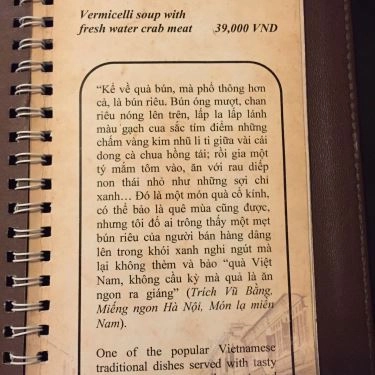 Vermicelli soup with
fresh water crab meat 39,000 VND
“Kể về quà bún, mà phổ thông hơn
cả, là bún riêu. Bún óng mượt, chan
riêu nóng lên trên, lấp la lấp lánh
màu gạch cua sắc tím điểm những
chấm vàng kim nhũ li ti giữa vài cái
dong cà chua hồng tái; rồi gia một
tý mắm tôm vào, ăn với rau diếp
non thái nhỏ như những sợi chỉ
xanh… Đó là một món quà cổ kính,
có thể bảo là quê mùa cũng được,
nhưng tôi đố ai trông thấy một mẹt
bún riêu của người bán hàng dâng
lên trong khói xanh nghi ngút mà
lại không thèm và bảo “quà Việt
Nam, không cầu kỳ mà quả là ăn
ngon ra giáng” (Trích Vũ Bằng,
Miếng ngon Hà Nội, Món lạ miền
Nam).
One of the popular Vietnamese
traditional dishes served with tasty